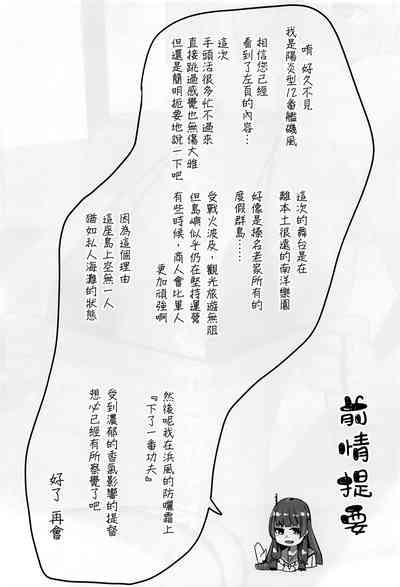 前情提要
唷 好久不見
我是陽炎型12番艦磯風
相信您已經
看到了左頁的內容…
這次
手頭活很多忙不過來
直接跳過感覺也無傷大雅
但還是簡明扼要地說一下吧
這次的舞台是在
離本土很遠的南洋樂園
好像是榛名老家所有的
度假群島……
受戰火波及,觀光旅遊無限
但島嶼似乎仍在堅持運營
有些時候,商人會比軍人
更加頑強啊
因為這個理由
這座島上空無一人
猶如私人海灘的狀態
然後呢我在浜風的防曬霜上
『下了一番功夫』
受到濃郁的香氣影響的提督
想必已經有所察覺了吧
好了 再會